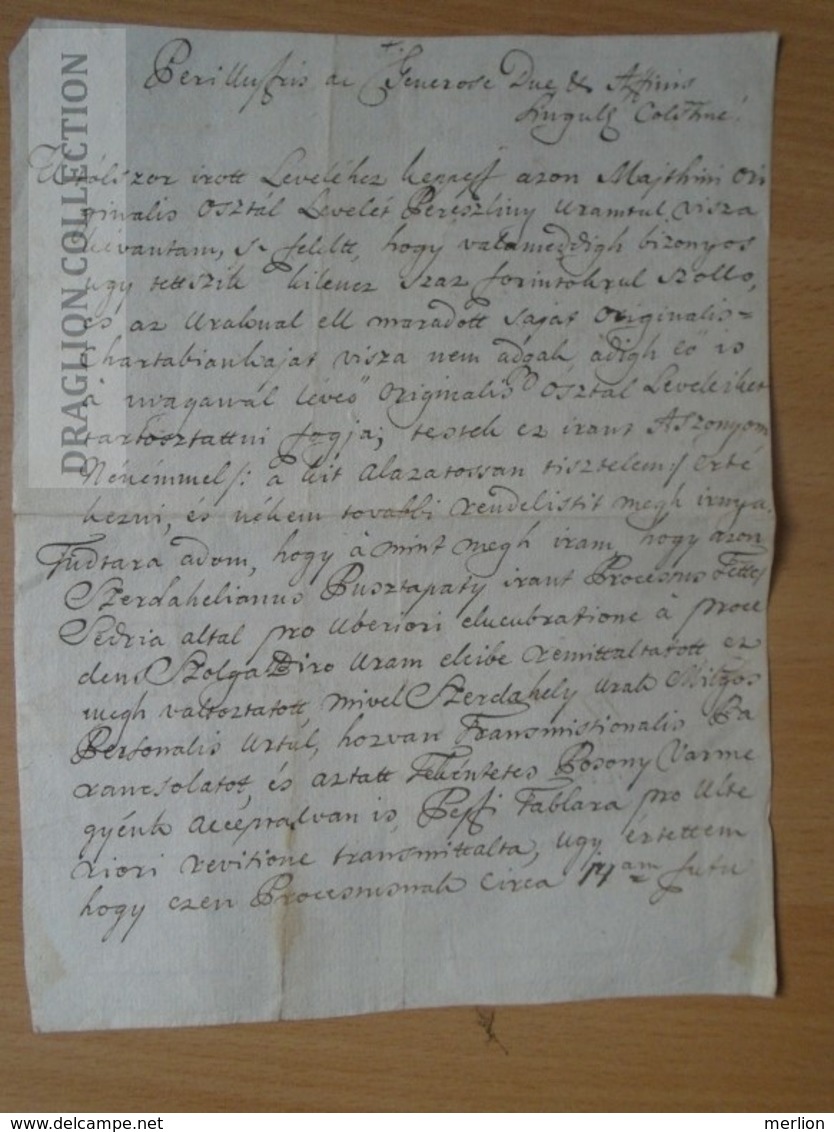 Perillustris ac Generose Dne & Affinis
Singulr Colendme!
Utólszor irott Leveléhez kepest azon Majthini Ori
ginalis Osztál Levelét Pereszliny Uramtul visza
kévantam, s felelte, hogy valameddigh bizonyos
ugy tettszik kilencz szaz forintokrul szolló,
és az Uraknal ell maradott saját originalis
Chartabiankajat visza nem adgak àdigh eő is
à magánál léveő originalis Osztál Leveleiket
tartosztattni fogja; testek ez irant Aszonyom
Nénémmel /: à kit alazatossan tisztelem :/ érte
kezni, és nékem tovabbi rendelistit megh irnya.
Tudtara adom, hogy à mint megh iram, hogy azon
Szerdahelianus Pusztapaty irant Processus Tettes
Sedria altal pro uberiori elucubratione à proce
dens Szolga Biro Uram eleibe remittáltatott ez
megh valtoztatott, mivel Szerdahely Urak Mltgos
Personalis Urtul, hozvan Transmissionalis Pa
rancsolatot, és aztatt Tekéntetes Posony Varme
gyénk acceptalvan is, Pesti Tablara pro Ulte
riori revisione transmittalta, ugy értettem
hogy ezen Processusnak circa 14am futu
DRAGLION COLLECTION
delcampe.net
merlion